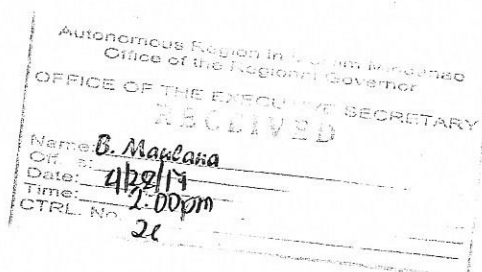 Autonomous Region in Muslim Mindanao
Office of the Regional Governor
OFFICE OF THE EXECUTIVE SECRETARY
RECEIVED
Name: B. Maulana
Date: 4/28/19
Time: 2:00pm
CTRL. No.